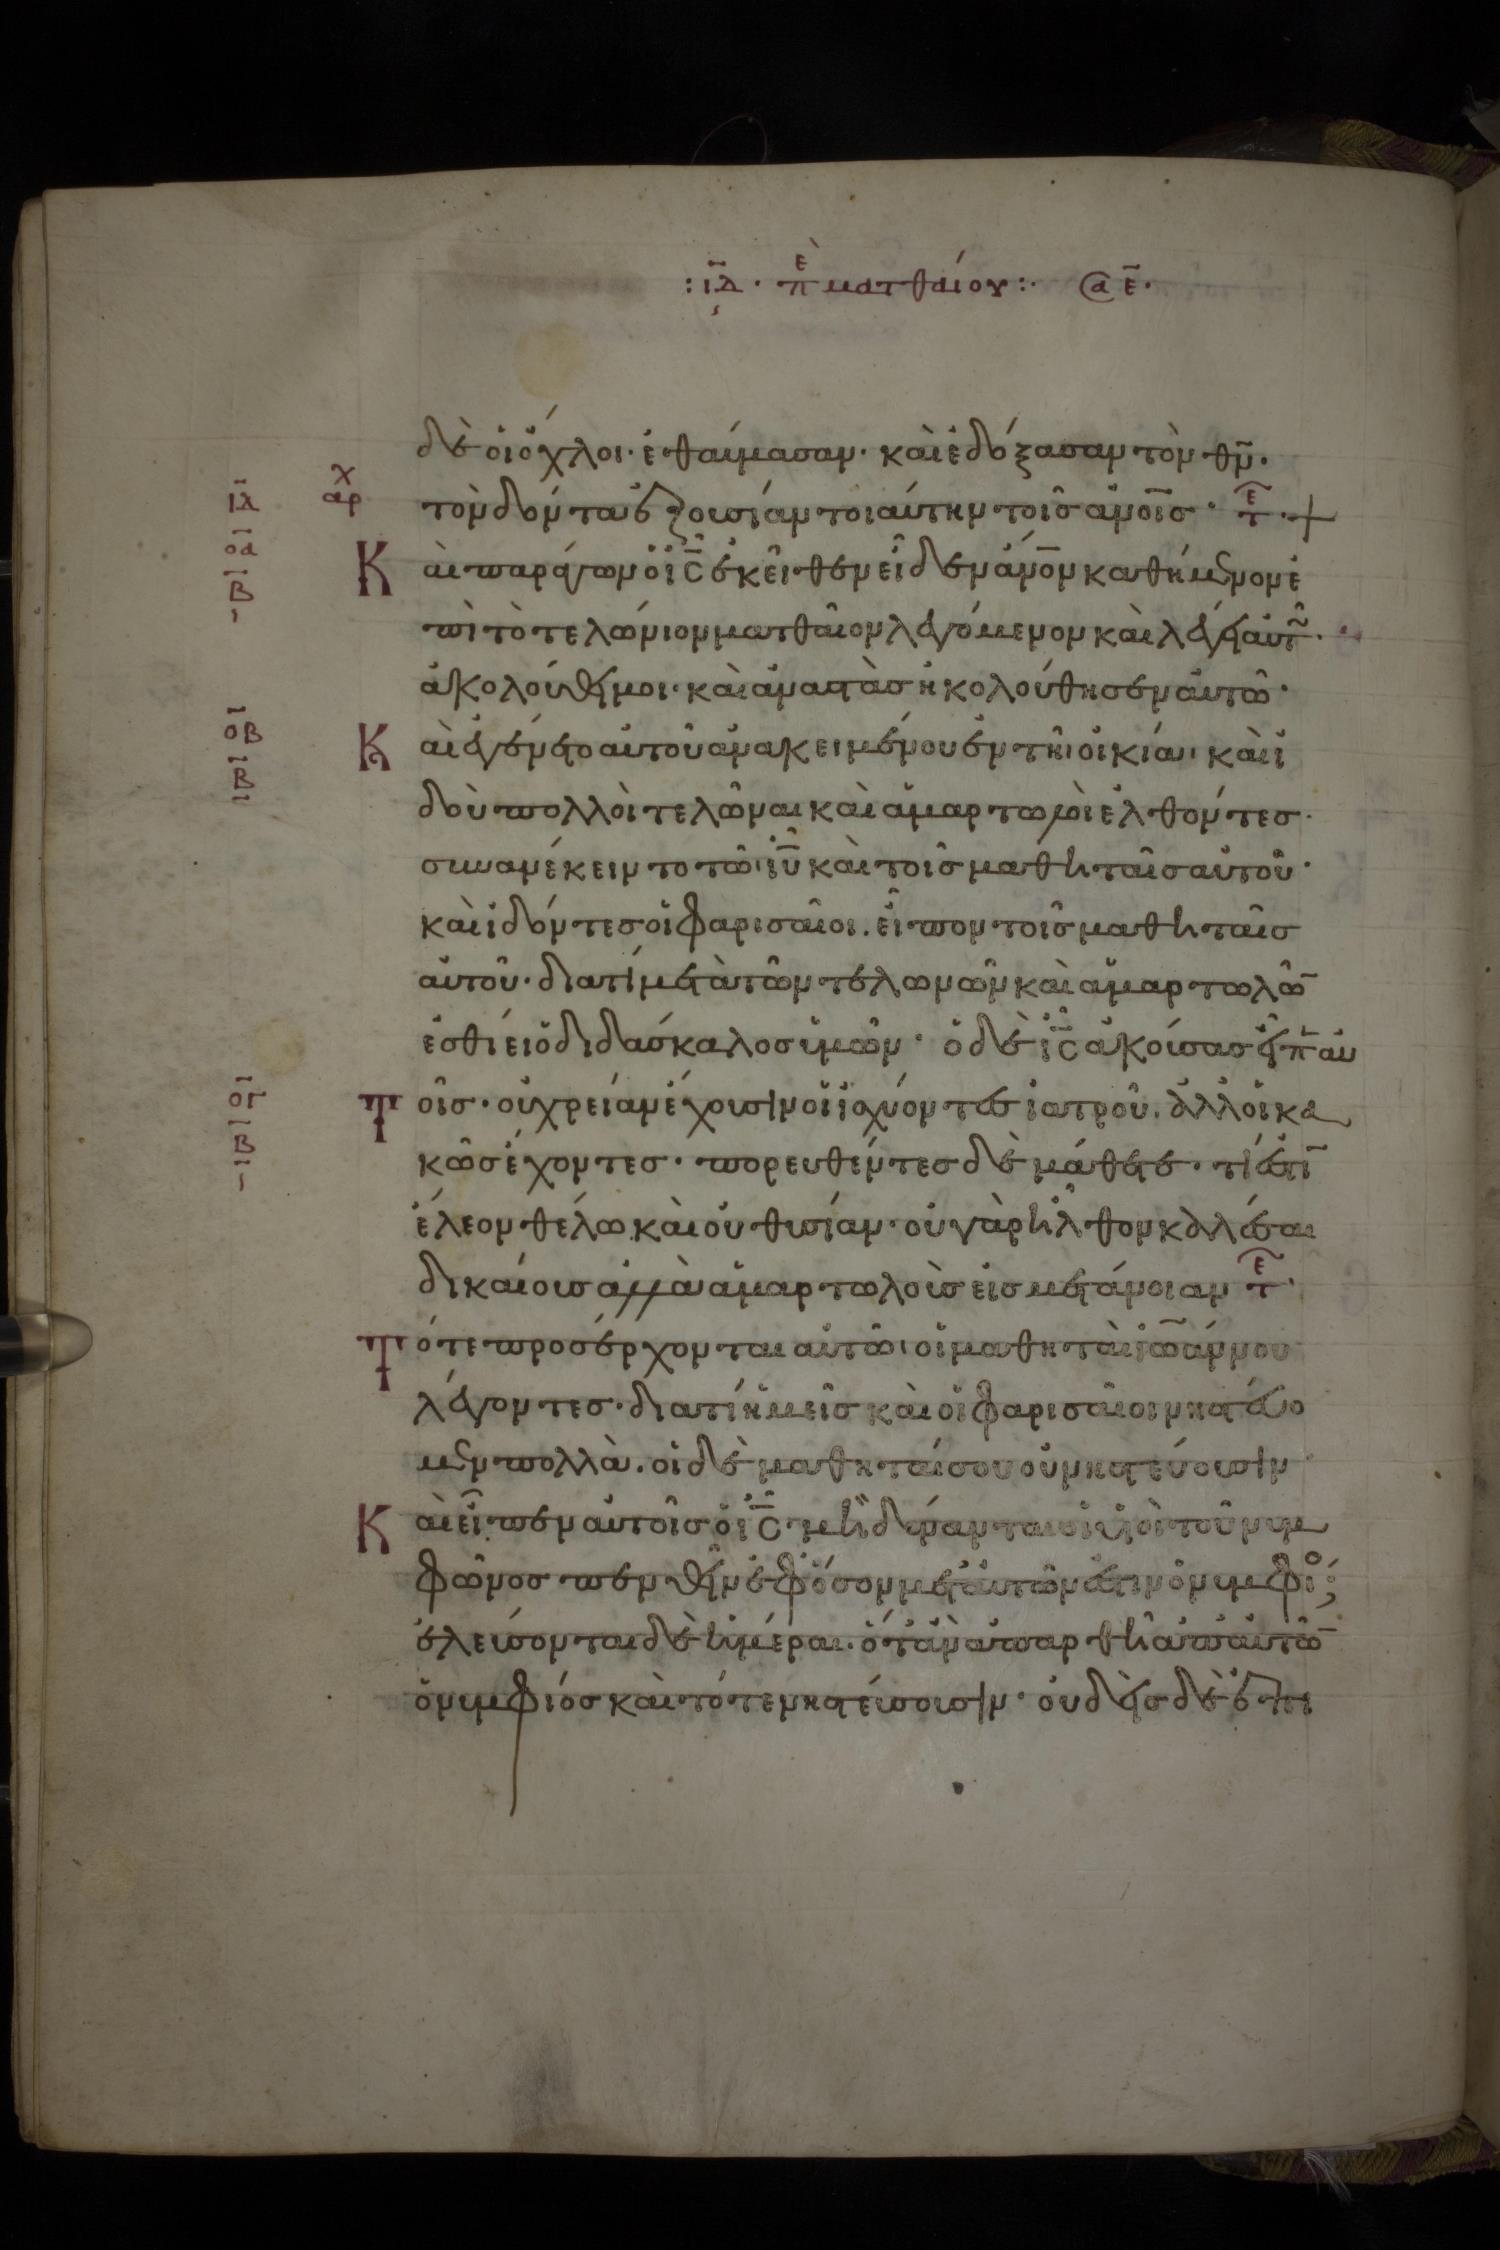 :ιδ· π ε ματθαίου:· @ ε·
δὲ οἱ ὄχλοι· ἐθαύμασαν· καὶ ἐδόξασαν τὸν θν·
ιδ αρχ τὸν δόντα ἐξουσίαν τοιαύτην τοῖς ανοις· τε·+
οα Καὶ παράγων ὁ ις ἐκεῖθεν εἶδεν ανον καθήμενον ἐ
β πὶ τὸ τελώνιον ματθαῖον λεγόμενον καὶ λέγει αὐτ·
ἀκολούθει μοι· καὶ ἀναστὰς ἠκολούθησεν αὐτῶ·
οβ Καὶ ἐγένετο αὐτοῦ ἀνακειμένου ἐν τῆι οἰκίαι· καὶ ἰ
β δοὺ πολλοὶ τελῶναι καὶ ἁμαρτωλοὶ ἐλθόντες·
συνανέκειντο τῶι ιυ καὶ τοῖς μαθηταῖς αὐτοῦ·
καὶ ἰδόντες οἱ φαρισαῖοι. εἶπον τοῖς μαθηταῖς
αὐτοῦ· διατί μετὰ τῶν τελωνῶν καὶ ἁμαρτωλῶ
ἐσθίει ὁ διδάσκαλος ὑμῶν· ὁ δὲ ις ἀκούσας εἶπ αυ
ογ Τοῖς· οὐ χρείαν ἔχουσιν οἱ ἰσχύοντες ἰατροῦ. ἀλλ οἱ κα
β κῶς ἔχοντες· πορευθέντες δὲ μάθετε· τί ἐστι
ἔλεον θέλω καὶ οὐ θυσίαν· οὐ γὰρ ἦλθον καλέσαι
δικαίους ἀλλὰ ἁμαρτωλοὺς εἰς μετάνοιαν τε·
Τότε προσέρχονται αὐτῶι οἱ μαθηταὶ ἰωάννου
λέγοντες· διατί ἡμεῖς καὶ οἱ φαρισαῖοι νηστεύο
μεν πολλὰ. οἱ δὲ μαθηταί σου οὐ νηστεύουσιν
Καὶ εἶπεν αὐτοῖς ὁ ις· μὴ δύνανται οἱ υἱοὶ τοῦ νυμ
φῶνος πενθεῖν ἐφ ὅσον μετ αὐτῶν ἐστιν ὁ νυμφίο;
ἐλεύσονται δὲ ἡμέραι. ὅταν ἀπαρθῆ ἀπ αὐτῶ
ὁ νυμφιός καὶ τότε νηστεύσουσιν· οὐδεὶς δὲ ἐπι